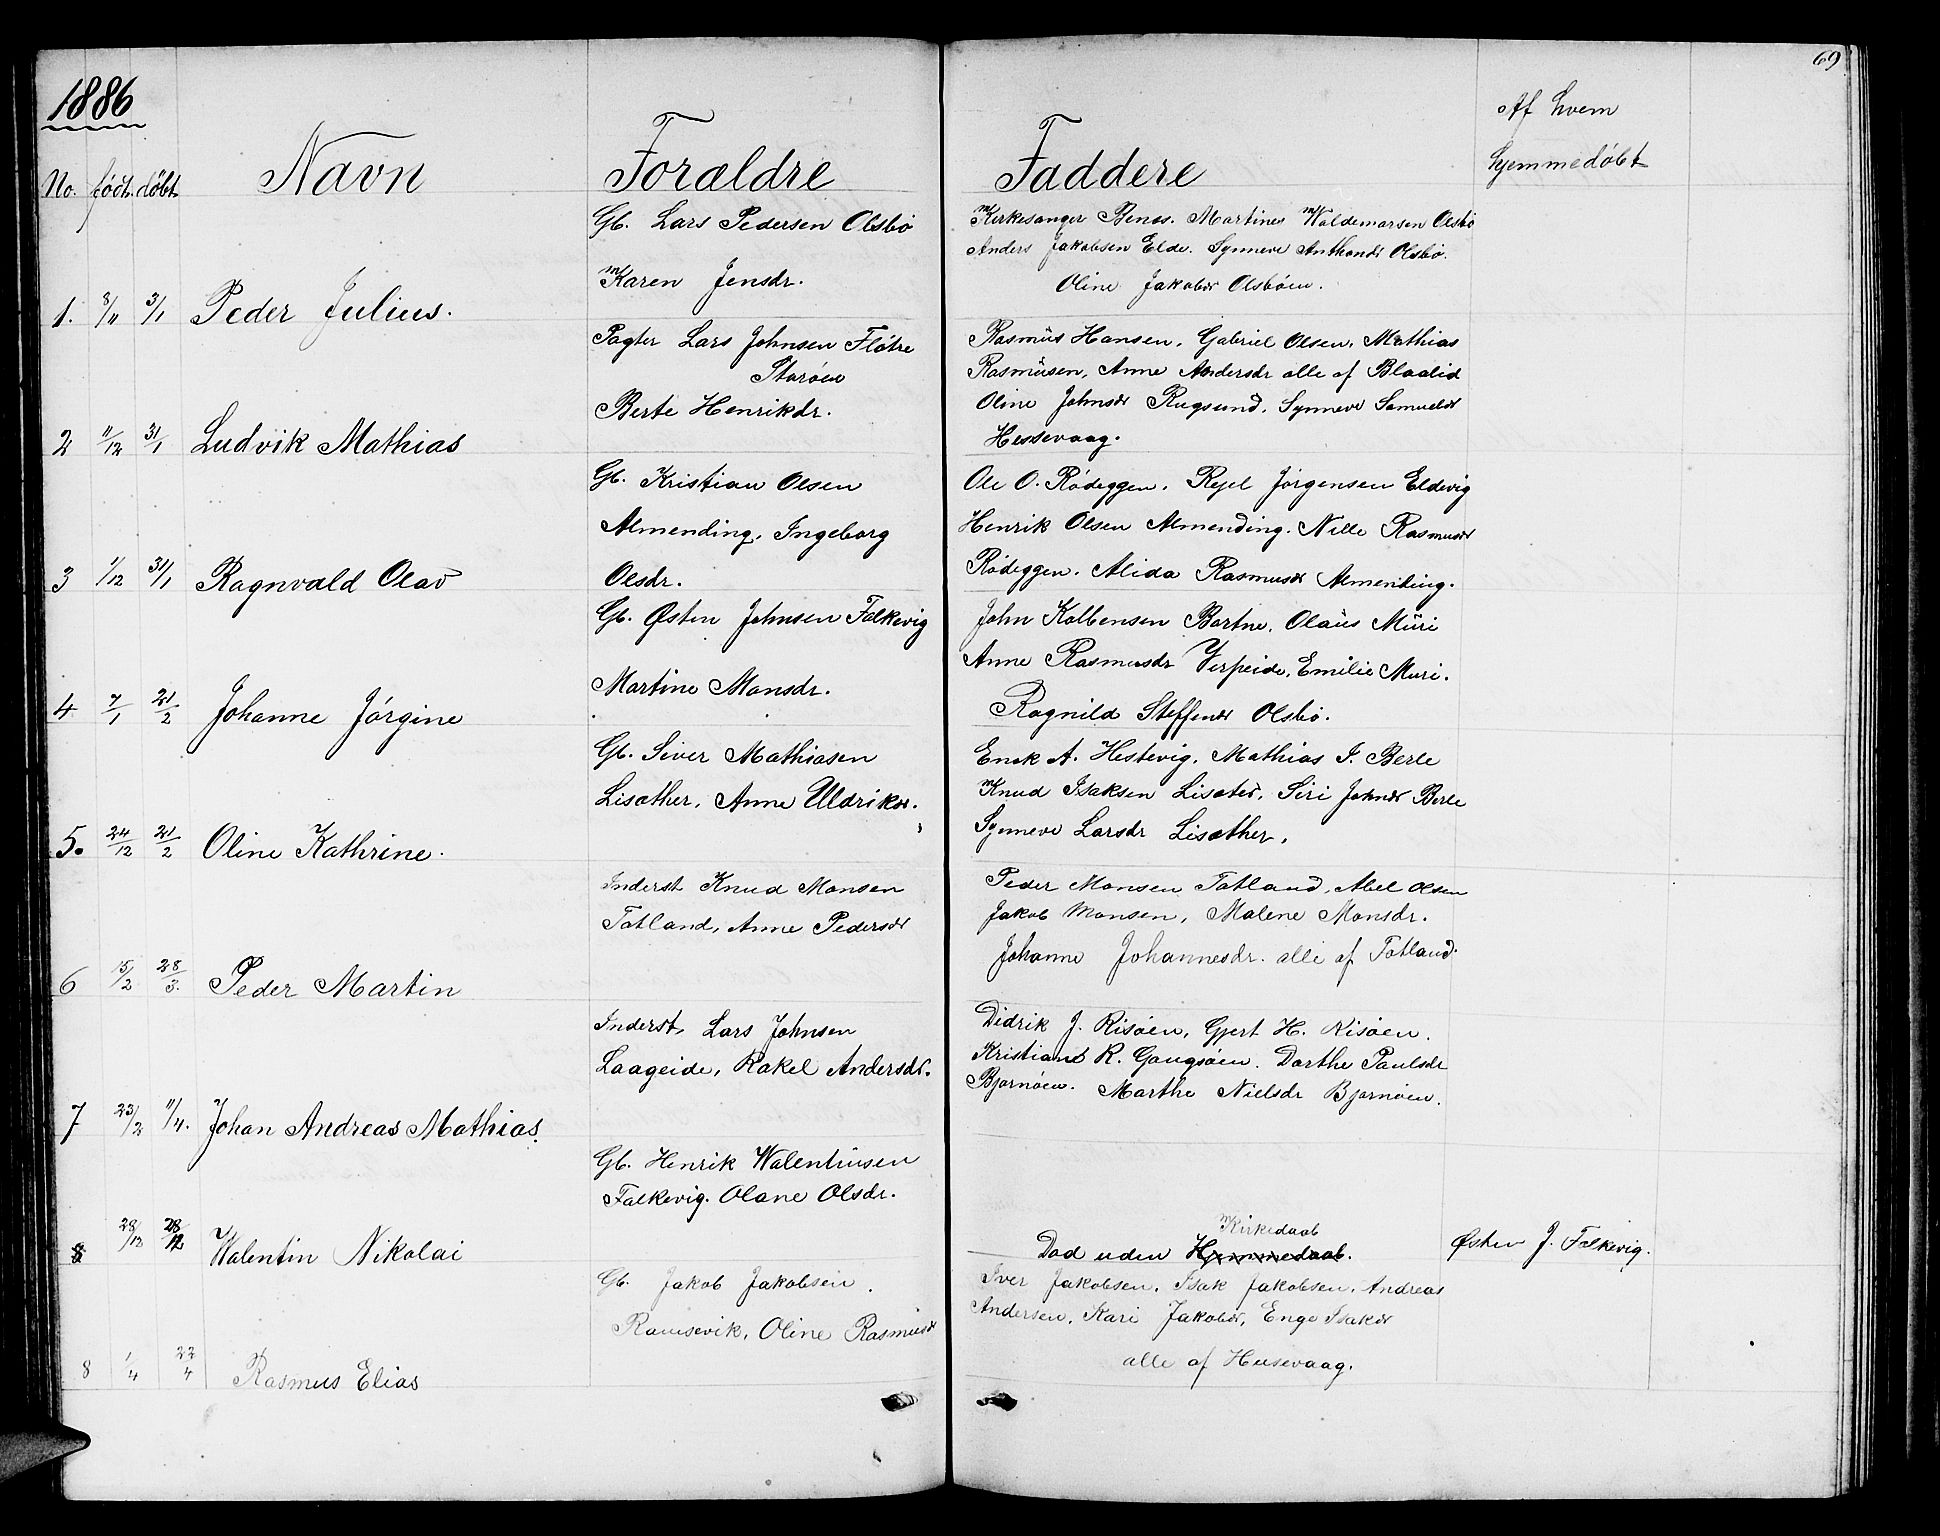 1886
69
No. født. døbt. Navn Forældre Faddere Af hvem hjemmedøbt
Gb. Lars Pedersen Olsbø
Karen Jensdr.
1. 8/11 3/1 Peder Julius.
Kirkesanger Martines Waldemarsen Olsbø
Anders Jakobsen Elde. Synneve Olsbø.
Oline Jakobsdr Olsbøen.
Pagter Lars Johnsen Fløtre
Berte Henrikdr.
2 11/12 31/1 Ludvik Mathias
Rasmus Hansen, Gabriel Olsen, Mathias
Rasmusen, Anne Andersdr alle af Blaalid
Oline Johnsdr Rugsund, Synneve Samueldr
Hessevaag.
Gb. Kristian Olsen
Almending, Ingeborg
Olsdr.
3 1/12 31/1 Ragnvald Olav
Ole O. Rødeggen. Rejel Jørgensen Eldevig
Henrik Olsen Almending. Nille Rasmusdr
Rødeggen. Alida Rasmusdr Almending.
Gb. Østen Johnsen Falkevig
Martine Monsdr.
4 7/1 21/2 Johanne Jørgine
John Kolbensen Bortne. Olaus Muri
Anne Rasmusdr Verpeide, Emilie Muri.
Ragnild Steffensdr Olsbø.
Gb. Siver Mathiasen
Lisæther, Anne Uldriksdr.
5. 24/12 21/2 Oline Kathrine.
Enok A. Hestevig. Mathias I. Berle
Knud Isaksen Lisæter, Siri Johnsdr Berle
Synneve Larsdr Lisæther.
Inderst Knud Monsen
Totland, Anne Pedersdr
6 15/2 28/3. Peder Martin
Peder Monsen Totland, Abel Olsen
Jakob Monsen, Malene Monsdr.
Johanne Johannesdr. alle af Totland.
Inderst. Lars Johnsen
Laageide, Rakel Andersdr.
7 23/2 11/4. Johan Andreas Mathias.
Didrik J. Risøen, Gjert H. Risøen.
Kristian R. Gangsøen. Dorthe Paulsdr
Bjørnøen. Marthe Nielsdr Bjørnøen.
Gb. Henrik Walentinsen
Falkevig. Olane Olsdr.
8 28/12 28/12 Walentin Nikolai
Kirkedaab
Død uden Hjemmedaab. Østen J. Falkevig.
Gb. Jakob Jakobsen.
Ramsevik, Oline Rasmusdr
8 1/4 22/4 Rasmus Elias
Iver Jakobsen. Isak Jakobsen. Andreas
Andersen, Kari Jakobsdr, Isaksdr
alle af Husevaag.